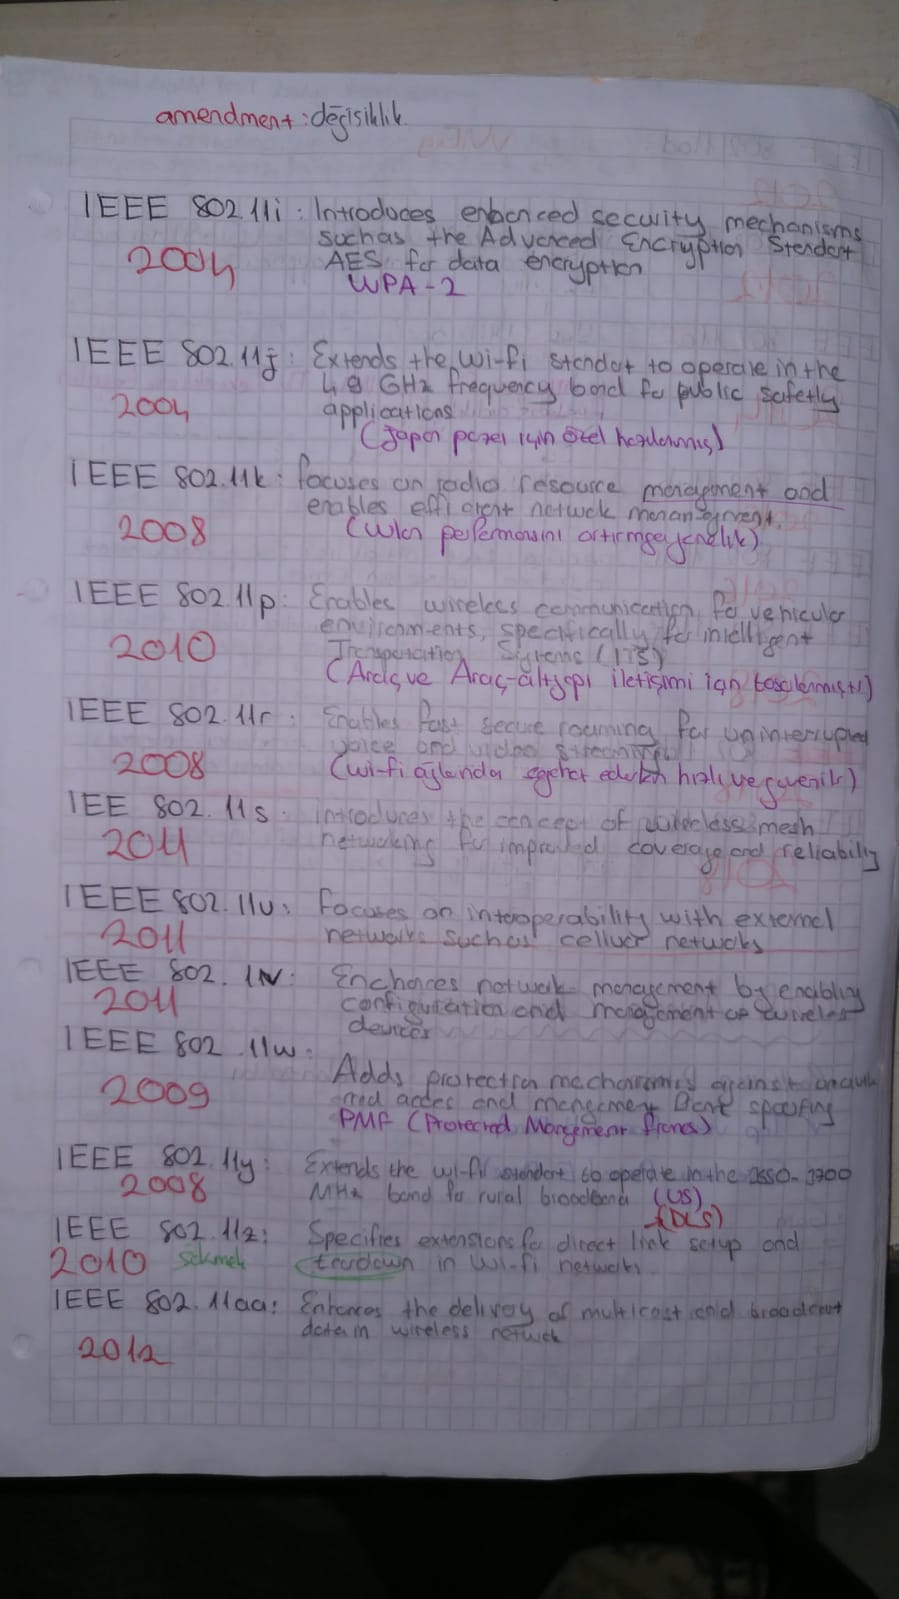 amendment: değişiklik
IEEE 802.11i: Introduces enhanced security mechanisms
suchas the Advanced Encryption Standart
2004 AES for data encryption
WPA-2
IEEE 802.11j: Extends the Wi-fi standat to operate in the
4.9 GHz frequency band fo public safetly
2004 applications
(Japon pazarı için özel hazırlanmış)
IEEE 802.11k: focuses on radio resource management and
enables efficient netwok
2008 (Wlan
IEEE 802.11p: Enables wireless communication fo vehicular
environments, specifically fo intelligent
2010 Transportation Systems (ITS)
(Araç ve Araç-altyapı iletişimi için tasarlanmıştı)
IEEE 802.11r: Enables fast secure roaming for uninterrupted
voice and video streaming
2008 (wi-fi ağlarında ederken hızlı ve güvenilir)
IEE 802.11s: introduces the concept of wireless mesh
2011 networking fo improved coverage and reliability
IEEE 802.11u: Focuses on interoperability with external
2011 networks suchas celluar netwoks
IEEE 802.11v: Enchances netwok management by enabling
2011 configuration and management of wireless
devices
IEEE 802.11w:
Adds protection mechanisms against
2009 access and spoofing
PMF (Protected Management frames)
IEEE 802.11y: Extends the wi-fi standart to operate in the 3650-3700
2008 MHz band fo rural broadband (US)
(DLS)
IEEE 802.11z: Specifies extensions fo direct link setup and
2010 sökmek teardown in Wi-fi network
IEEE 802.11aa: Enhances the delivery of multicast and broadcast
data in wireless netwok
2012